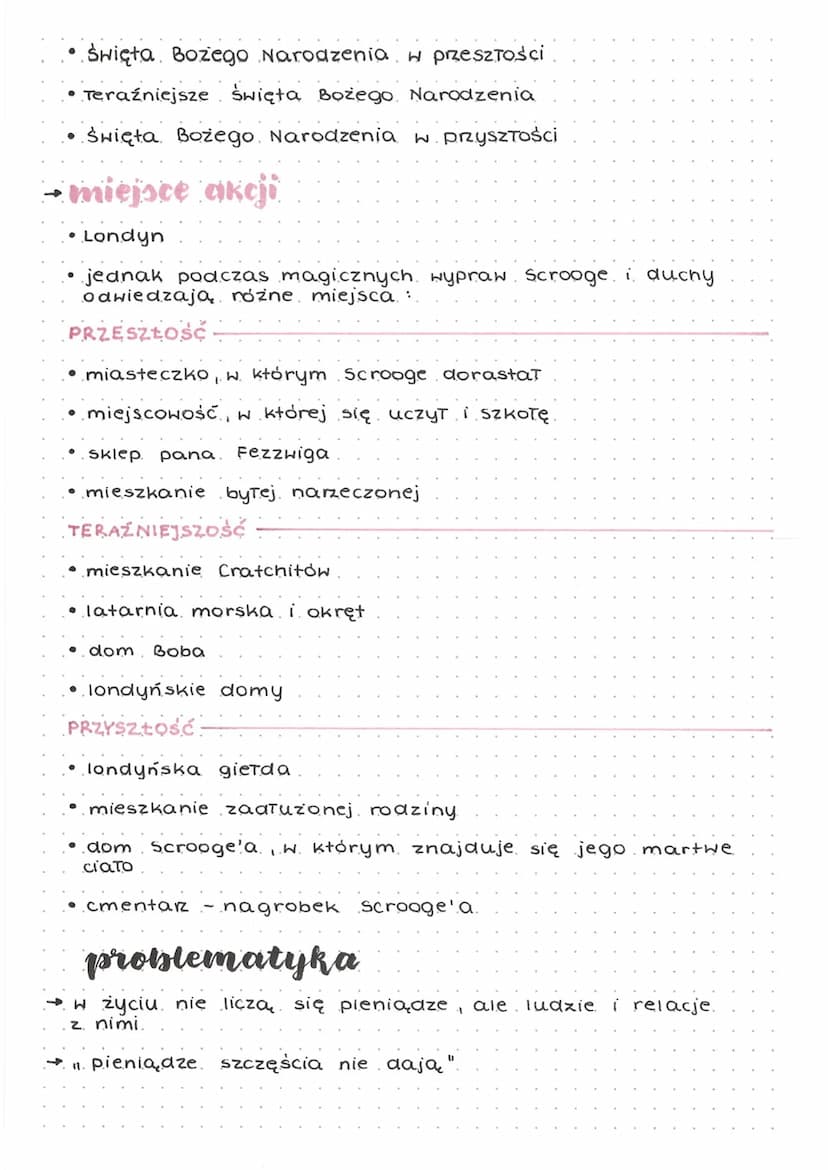 • Święta Bożego Narodzenia w przeszłości
• Teraźniejsze Święta Bożego Narodzenia
• Święta Bożego Narodzenia w przyszłości
→ miejsce akcji
• Londyn
• jednak podczas magicznych wypraw Scrooge i duchy
odwiedzają różne miejsca :
PRZESZŁOŚĆ
• miasteczko, w którym Scrooge dorastał
• miejscowość, w której się uczył i szkołę
• sklep pana Fezzwiga
• mieszkanie byłej narzeczonej
TERAŹNIEJSZOŚĆ
• mieszkanie Cratchitów
• latarnia morska i okręt
• dom Boba
• londyńskie domy
PRZYSZŁOŚĆ
• londyńska giełda
• mieszkanie zadłużonej rodziny
• dom Scrooge'a, w którym znajduje się jego martwe
ciało
• cmentarz - nagrobek Scrooge'a
problematyka
→ w życiu nie liczą się pieniądze, ale ludzie i relacje
z nimi
→ „pieniądze szczęścia nie dają"